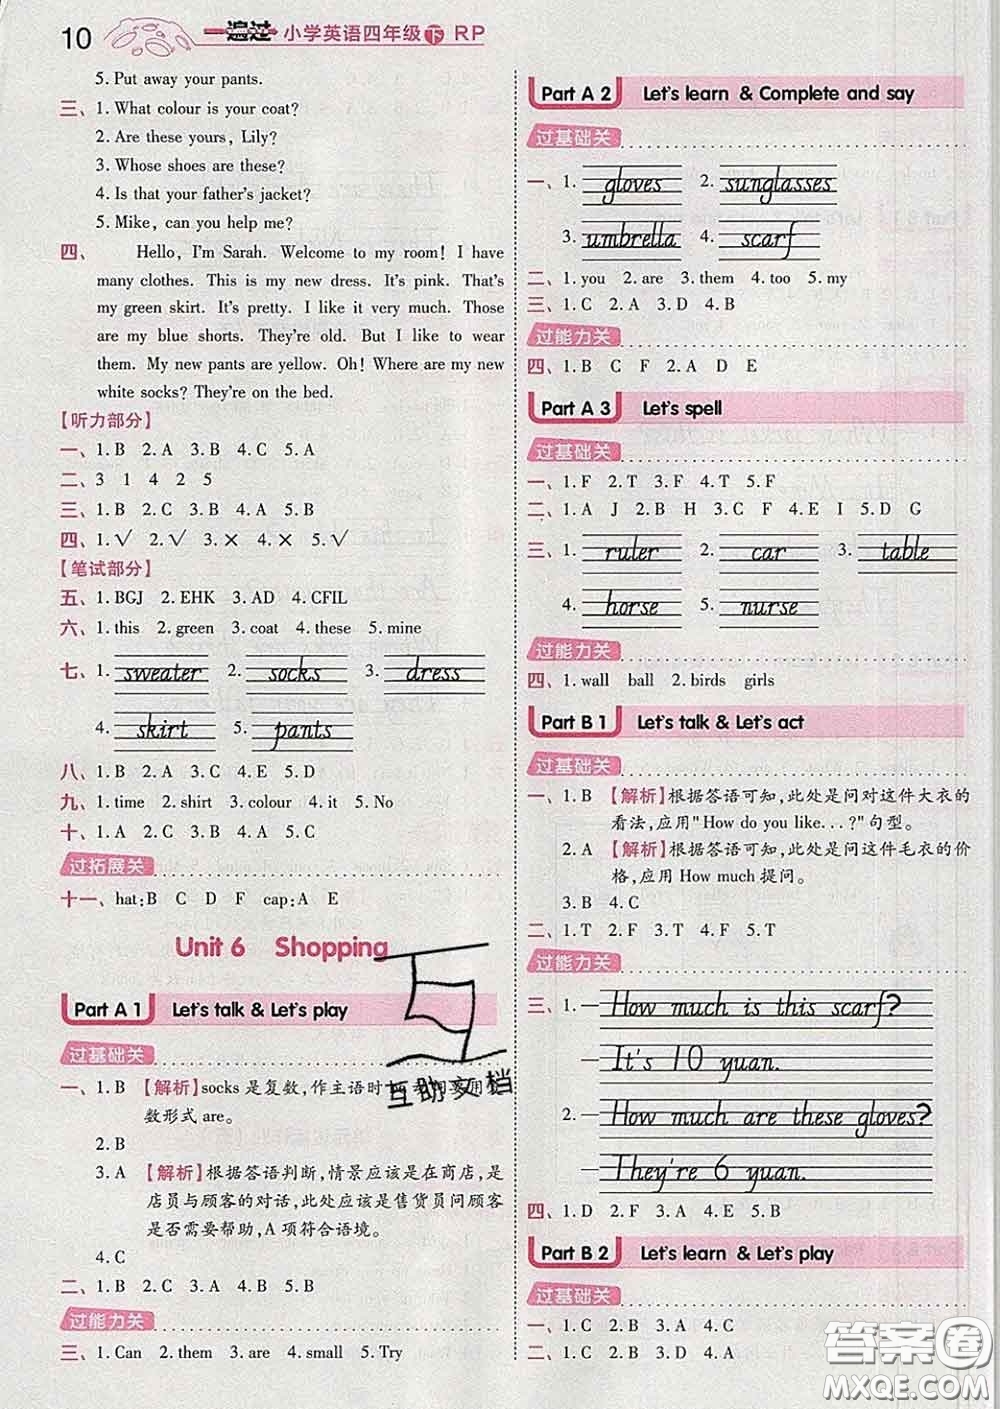 10 一遍过 小学英语四年级下 RP
5. Put away your pants.
三、1. What colour is your coat?
2. Are these yours, Lily?
3. Whose shoes are these?
4. Is that your father's jacket?
5. Mike, can you help me?
四、 Hello, I'm Sarah. Welcome to my room! I have
many clothes. This is my new dress. It's pink. That's
my green skirt. It's pretty. I like it very much. Those
are my blue shorts. They're old. But I like to wear
them. My new pants are yellow. Oh! Where are my new
white socks? They're on the bed.
【听力部分】
一、1. B 2. A 3. B 4. C 5. A
二、3 1 4 2 5
三、1. B 2. C 3. B 4. A 5. B
四、1. √ 2. √ 3. × 4. × 5. √
【笔试部分】
五、1. BGJ 2. EHK 3. AD 4. CFIL
六、1. this 2. green 3. coat 4. these 5. mine
七、1. sweater 2. socks 3. dress
4. skirt 5. pants
八、1. B 2. A 3. C 4. E 5. D
九、1. time 2. shirt 3. colour 4. it 5. No
十、1. A 2. C 3. B 4. B 5. C
过拓展关
十一、hat: B C D F cap: A E
Unit 6 Shopping
Part A 1 Let's talk & Let's play
过基础关
一、1. B 【解析】socks 是复数,作主语时
数形式 are。
2. B
3. A 【解析】根据答语判断,情景应该是在商店,是
店员与顾客的对话,此处应该是售货员问顾客
是否需要帮助,A 项符合语境。
4. C
二、1. B 2. B 3. A 4. C 5. C
过能力关
三、1. Can 2. them 3. are 4. small 5. Try
互助文档
Part A 2 Let's learn & Complete and say
过基础关
一、1. gloves 2. sunglasses
3. umbrella 4. scarf
二、1. you 2. are 3. them 4. too 5. my
三、1. C 2. A 3. D 4. B
过能力关
四、1. B C F 2. A D E
Part A 3 Let's spell
过基础关
一、1. F 2. T 3. F 4. T 5. F
二、1. A J 2. B H 3. C F 4. E I 5. D G
三、1. ruler 2. car 3. table
4. horse 5. nurse
过能力关
四、1. wall ball 2. birds girls
Part B 1 Let's talk & Let's act
过基础关
一、1. B 【解析】根据答语可知,此处是问对这件大衣的
看法,应用"How do you like...?"句型。
2. A 【解析】根据答语可知,此处是问这件毛衣的价
格,应用 How much 提问。
3. B 4. C
二、1. T 2. F 3. T 4. F 5. T
过能力关
三、1. —How much is this scarf?
—It's 10 yuan.
2. —How much are these gloves?
—They're 6 yuan.
四、1. D 2. F 3. A 4. E 5. B
Part B 2 Let's learn & Let's play
过基础关
一、1. C 2. B 3. A 4. C
二、1. C 2. B 3. A 4. E 5. D
答案圈
MXQE.COM